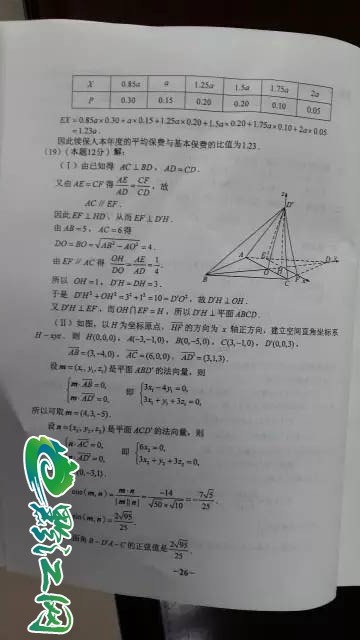 X 0.85a a 1.25a 1.5a 1.75a 2a
P 0.30 0.15 0.20 0.20 0.10 0.05
EX=0.85a×0.30+a×0.15+1.25a×0.20+1.5a×0.20+1.75a×0.10+2a×0.05
=1.23a.
因此续保人本年度的平均保费与基本保费的比值为1.23.
(19)(本题12分)解:
(Ⅰ)由已知得 AC⊥BD, AD=CD.
又由 AE=CF 得 AE/AD=CF/CD, 故
AC∥EF.
因此 EF⊥HD, 从而 EF⊥D'H.
由 AB=5, AC=6 得
DO=BO=√(AB²-AO²)=4.
由 EF∥AC 得 OH/DO=AE/AD=1/4.
所以 OH=1, D'H=DH=3.
于是 D'H²+OH²=3²+1²=10=D'O², 故 D'H⊥OH.
又 D'H⊥EF, 而 OH∩EF=H, 所以 D'H⊥平面ABCD.
z
D'
A
E
H
D
x
B
O
C
F
y
(Ⅱ)如图, 以 H 为坐标原点, HF 的方向为 x 轴正方向, 建立空间直角坐标系
H-xyz. 则 H(0,0,0), A(-3,-1,0), B(0,-5,0), C(3,-1,0), D'(0,0,3),
AB=(3,-4,0), AC=(6,0,0), AD'=(3,1,3).
设 m=(x₁,y₁,z₁) 是平面 ABD' 的法向量, 则
{m·AB=0, m·AD'=0, 即 {3x₁-4y₁=0, 3x₁+y₁+3z₁=0,
所以可取 m=(4,3,-5).
设 n=(x₂,y₂,z₂) 是平面 ACD' 的法向量, 则
n·AC=0, n·AD'=0, 即 {6x₂=0, 3x₂+y₂+3z₂=0,
(0,-3,1).
cos⟨m,n⟩=m·n/|m||n|=-14/(√50×√10)=-7√5/25.
sin⟨m,n⟩=2√95/25.
面角 B-D'A-C 的正弦值是 2√95/25.
-26-